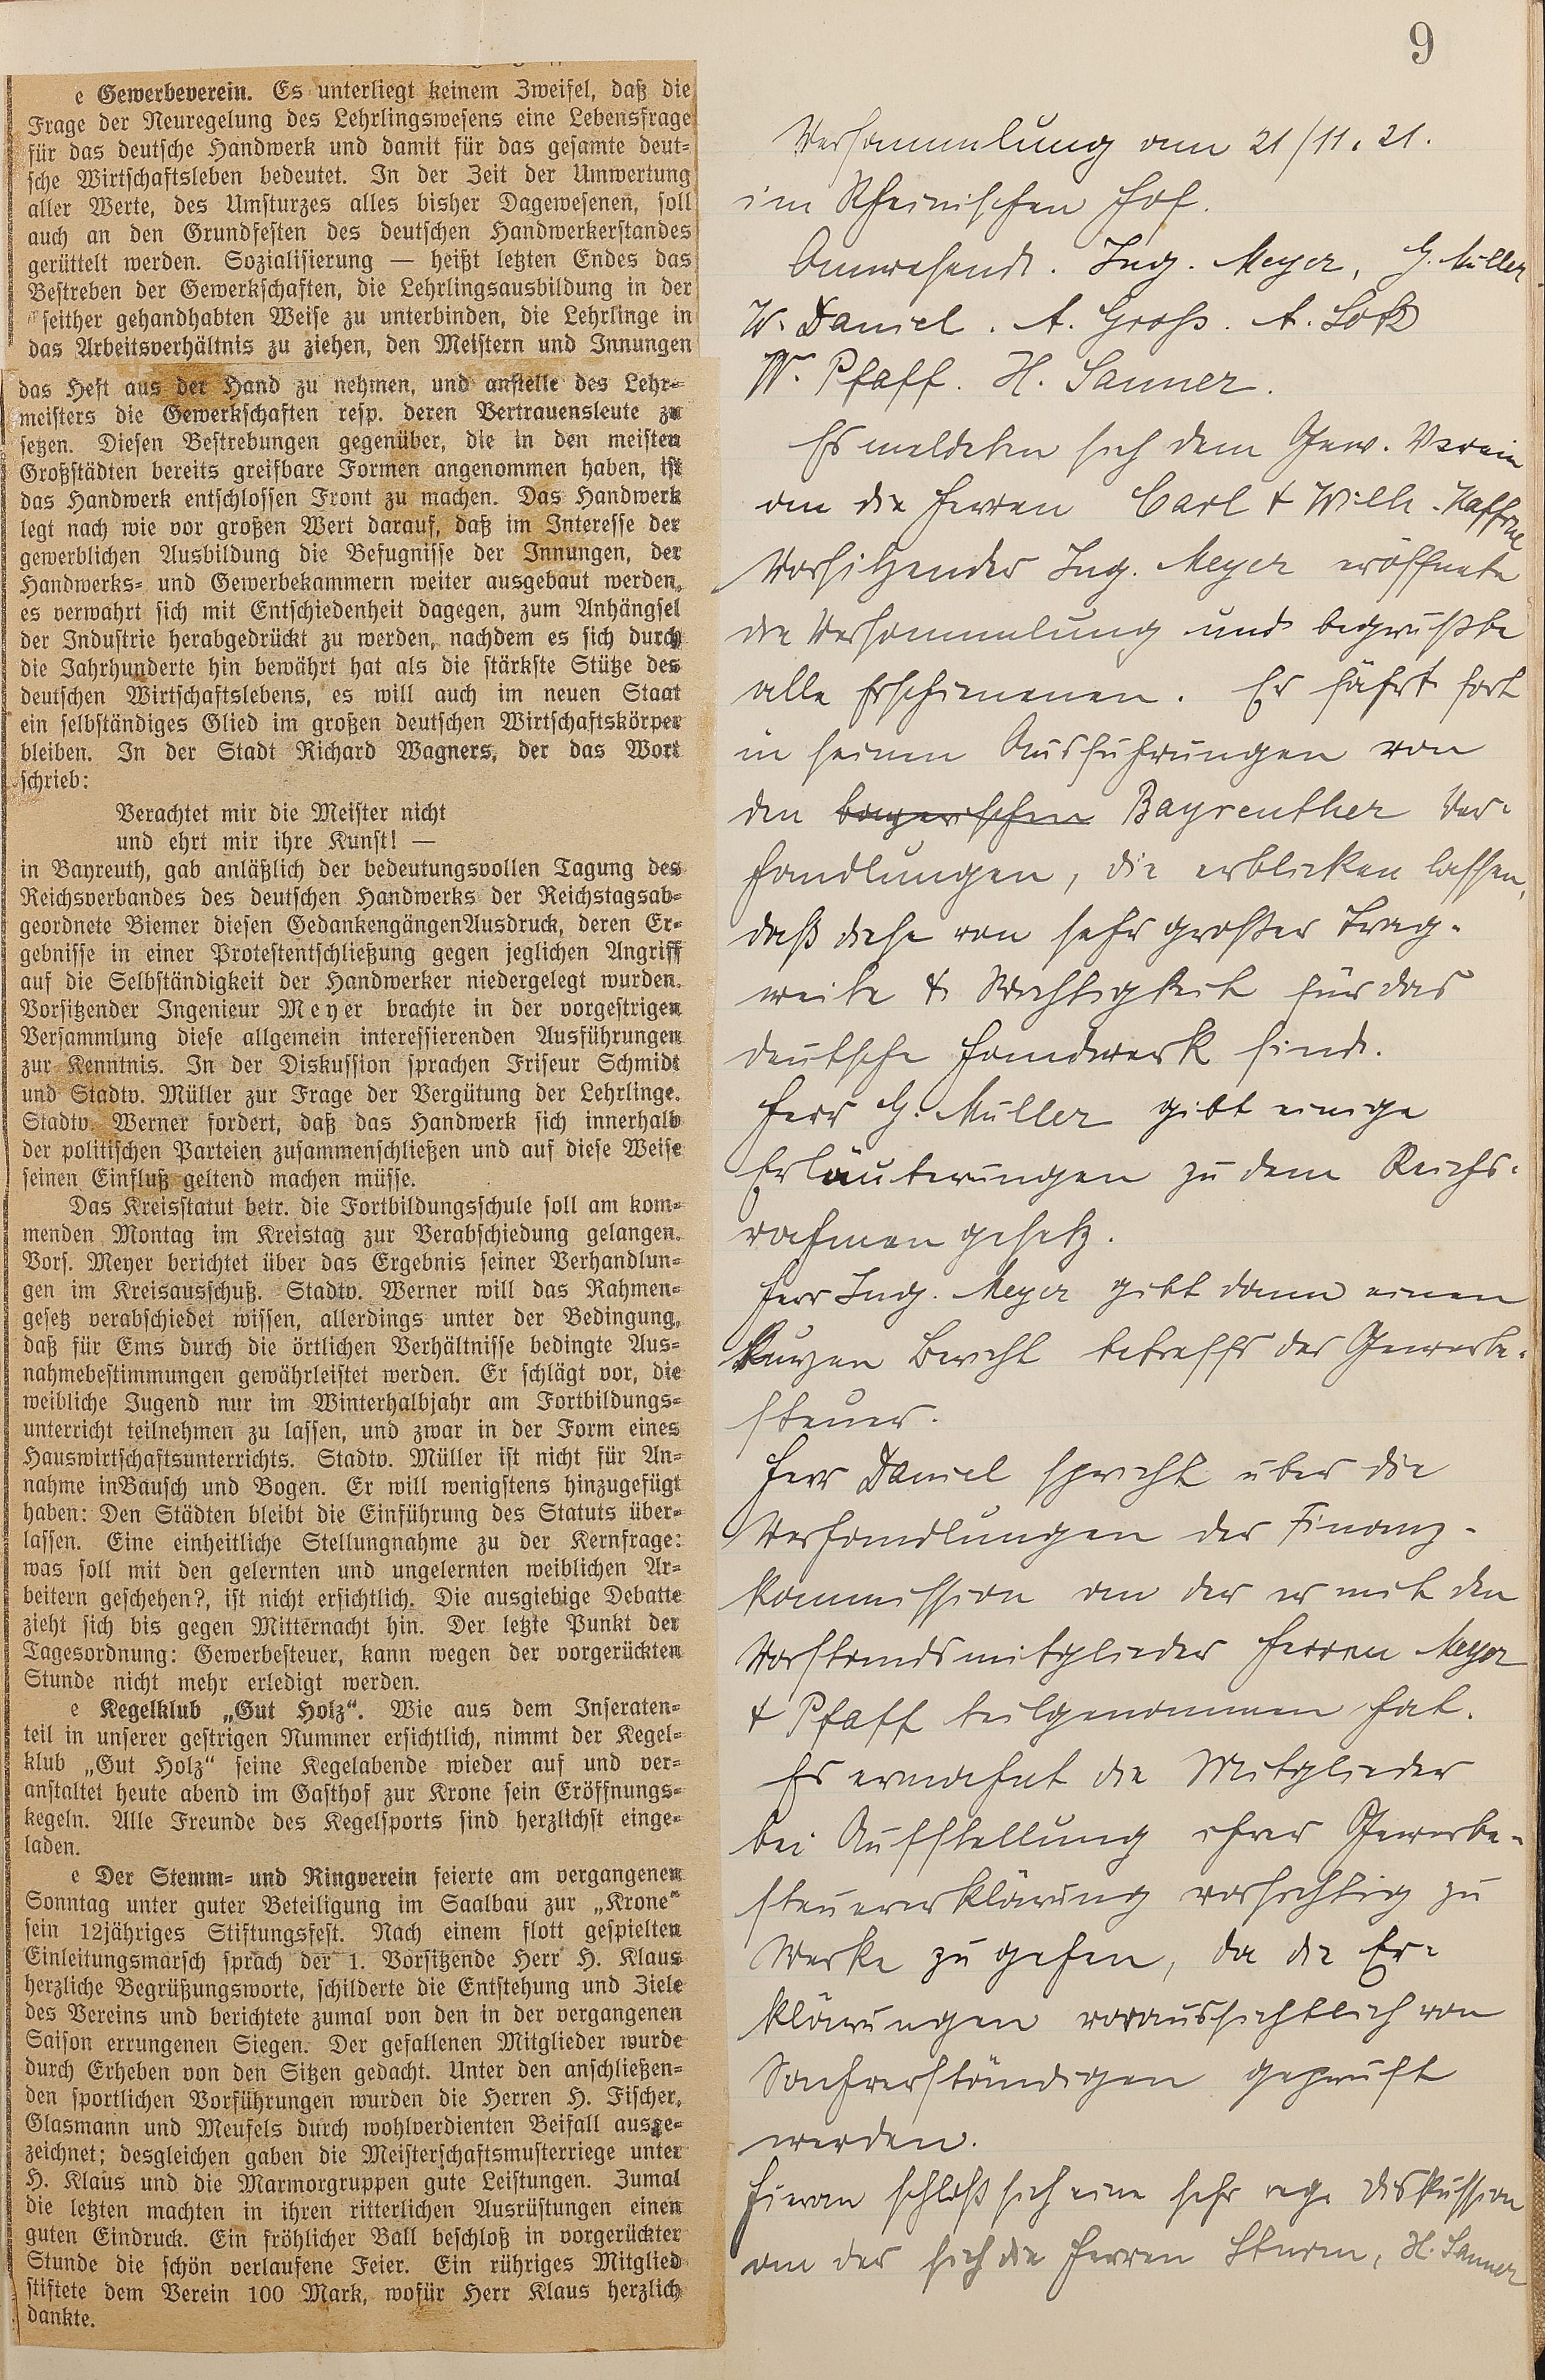 9
e Gewerbeverein. Es unterliegt keinem Zweifel, daß die
Frage der Neuregelung des Lehrlingswesens eine Lebensfrage
für das deutsche Handwerk und damit für das gesamte deut-
sche Wirtschaftsleben bedeutet. In der Zeit der Umwertung
aller Werte, des Umsturzes alles bisher Dagewesenen, soll
auch an den Grundfesten des deutschen Handwerkerstandes
gerüttelt werden. Sozialisierung — heißt letzten Endes das
Bestreben der Gewerkschaften, die Lehrlingsausbildung in der
seither gehandhabten Weise zu unterbinden, die Lehrlinge in
das Arbeitsverhältnis zu ziehen, den Meistern und Innungen
das Heft aus der Hand zu nehmen, und anstelle des Lehr-
meisters die Gewerkschaften resp. deren Vertrauensleute zu
setzen. Diesen Bestrebungen gegenüber, die in den meisten
Großstädten bereits greifbare Formen angenommen haben, ist
das Handwerk entschlossen Front zu machen. Das Handwerk
legt nach wie vor großen Wert darauf, daß im Interesse der
gewerblichen Ausbildung die Befugnisse der Innungen, der
Handwerks- und Gewerbekammern weiter ausgebaut werden,
es verwahrt sich mit Entschiedenheit dagegen, zum Anhängsel
der Industrie herabgedrückt zu werden, nachdem es sich durch
die Jahrhunderte hin bewährt hat als die stärkste Stütze des
deutschen Wirtschaftslebens, es will auch im neuen Staat
ein selbständiges Glied im großen deutschen Wirtschaftskörper
bleiben. In der Stadt Richard Wagners, der das Wort
schrieb:
Verachtet mir die Meister nicht
und ehrt mir ihre Kunst! —
in Bayreuth, gab anläßlich der bedeutungsvollen Tagung des
Reichsverbandes des deutschen Handwerks der Reichstagsab-
geordnete Biemer diesen GedankengängenAusdruck, deren Er-
gebnisse in einer Protestentschließung gegen jeglichen Angriff
auf die Selbständigkeit der Handwerker niedergelegt wurden.
Vorsitzender Ingenieur Meyer brachte in der vorgestrigen
Versammlung diese allgemein interessierenden Ausführungen
zur Kenntnis. In der Diskussion sprachen Friseur Schmidt
und Stadtv. Müller zur Frage der Vergütung der Lehrlinge.
Stadtv. Werner fordert, daß das Handwerk sich innerhalb
der politischen Parteien zusammenschließen und auf diese Weise
seinen Einfluß geltend machen müsse.
Das Kreisstatut betr. die Fortbildungsschule soll am kom-
menden Montag im Kreistag zur Verabschiedung gelangen.
Vors. Meyer berichtet über das Ergebnis seiner Verhandlun-
gen im Kreisausschuß. Stadtv. Werner will das Rahmen-
gesetz verabschiedet wissen, allerdings unter der Bedingung,
daß für Ems durch die örtlichen Verhältnisse bedingte Aus-
nahmebestimmungen gewährleistet werden. Er schlägt vor, die
weibliche Jugend nur im Winterhalbjahr am Fortbildungs-
unterricht teilnehmen zu lassen, und zwar in der Form eines
Hauswirtschaftsunterrichts. Stadtv. Müller ist nicht für An-
nahme inBausch und Bogen. Er will wenigstens hinzugefügt
haben: Den Städten bleibt die Einführung des Statuts über-
lassen. Eine einheitliche Stellungnahme zu der Kernfrage:
was soll mit den gelernten und ungelernten weiblichen Ar-
beitern geschehen?, ist nicht ersichtlich. Die ausgiebige Debatte
zieht sich bis gegen Mitternacht hin. Der letzte Punkt der
Tagesordnung: Gewerbesteuer, kann wegen der vorgerückten
Stunde nicht mehr erledigt werden.
e Kegelklub „Gut Holz“. Wie aus dem Inseraten-
teil in unserer gestrigen Nummer ersichtlich, nimmt der Kegel-
klub „Gut Holz“ seine Kegelabende wieder auf und ver-
anstaltet heute abend im Gasthof zur Krone sein Eröffnungs-
kegeln. Alle Freunde des Kegelsports sind herzlichst einge-
laden.
e Der Stemm- und Ringverein feierte am vergangenen
Sonntag unter guter Beteiligung im Saalbau zur „Krone“
sein 12jähriges Stiftungsfest. Nach einem flott gespielten
Einleitungsmarsch sprach der 1. Vorsitzende Herr H. Klaus
herzliche Begrüßungsworte, schilderte die Entstehung und Ziele
des Vereins und berichtete zumal von den in der vergangenen
Saison errungenen Siegen. Der gefallenen Mitglieder wurde
durch Erheben von den Sitzen gedacht. Unter den anschließen-
den sportlichen Vorführungen wurden die Herren H. Fischer,
Glasmann und Meufels durch wohlverdienten Beifall ausge-
zeichnet; desgleichen gaben die Meisterschaftsmusterriege unter
H. Klaus und die Marmorgruppen gute Leistungen. Zumal
die letzten machten in ihren ritterlichen Ausrüstungen einen
guten Eindruck. Ein fröhlicher Ball beschloß in vorgerückter
Stunde die schön verlaufene Feier. Ein rühriges Mitglied
stiftete dem Verein 100 Mark, wofür Herr Klaus herzlich
dankte.
Versammlung am 21/11. 21.
im Rheinischen Hof.
Anwesend. Ing. Meyer, G. Müller
W. Daniel. A. Groß. A. Lotz
W. Pfaff. H. Sanner.
Es meldeten sich dem Gew. Verein
an die Herren Carl & Wilh.
Vorsitzender Ing. Meyer eröffnete
die Versammlung und begrüßte
alle Erschienenen. Er fährt fort
in seinen Ausführungen von
den bayerischen Bayreuther Ver-
handlungen, die erblicken lassen,
daß diese von sehr großer Trag-
weite & Wichtigkeit für das
deutsche Handwerk sind.
Herr G. Müller gibt einige
Erläuterungen zu dem Reichs-
rahmen gesetz.
Herr Ing. Meyer gibt dann einen
kurzen Bericht betreffs der Gewerbe-
steuer.
Herr Daniel spricht über die
Verhandlungen der Finanz-
kommission an der er mit den
Vorstandsmitglieder Herren Meyer
& Pfaff teilgenommen hat.
Er ermahnt die Mitglieder
bei Aufstellung ihrer Gewerbe-
steuererklärung vorsichtig zu
Werke zu gehen, da die Er-
klärungen voraussichtlich von
Sachverständigen geprüft
werden.
Hieran schloß sich eine sehr rege Diskussion
an der sich die Herren Sturm, H. Sanner